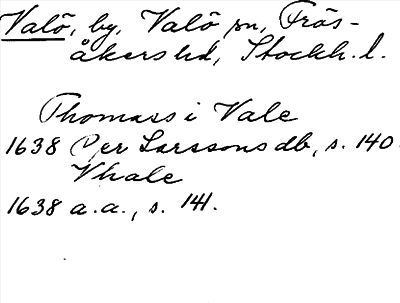 Valö, by, Valö sn, Frös-
åkers hd, Stockh. l.
Thomass i Vale
1638 Per Larssons db, s. 140
Vhale
1638 a.a., s. 141.